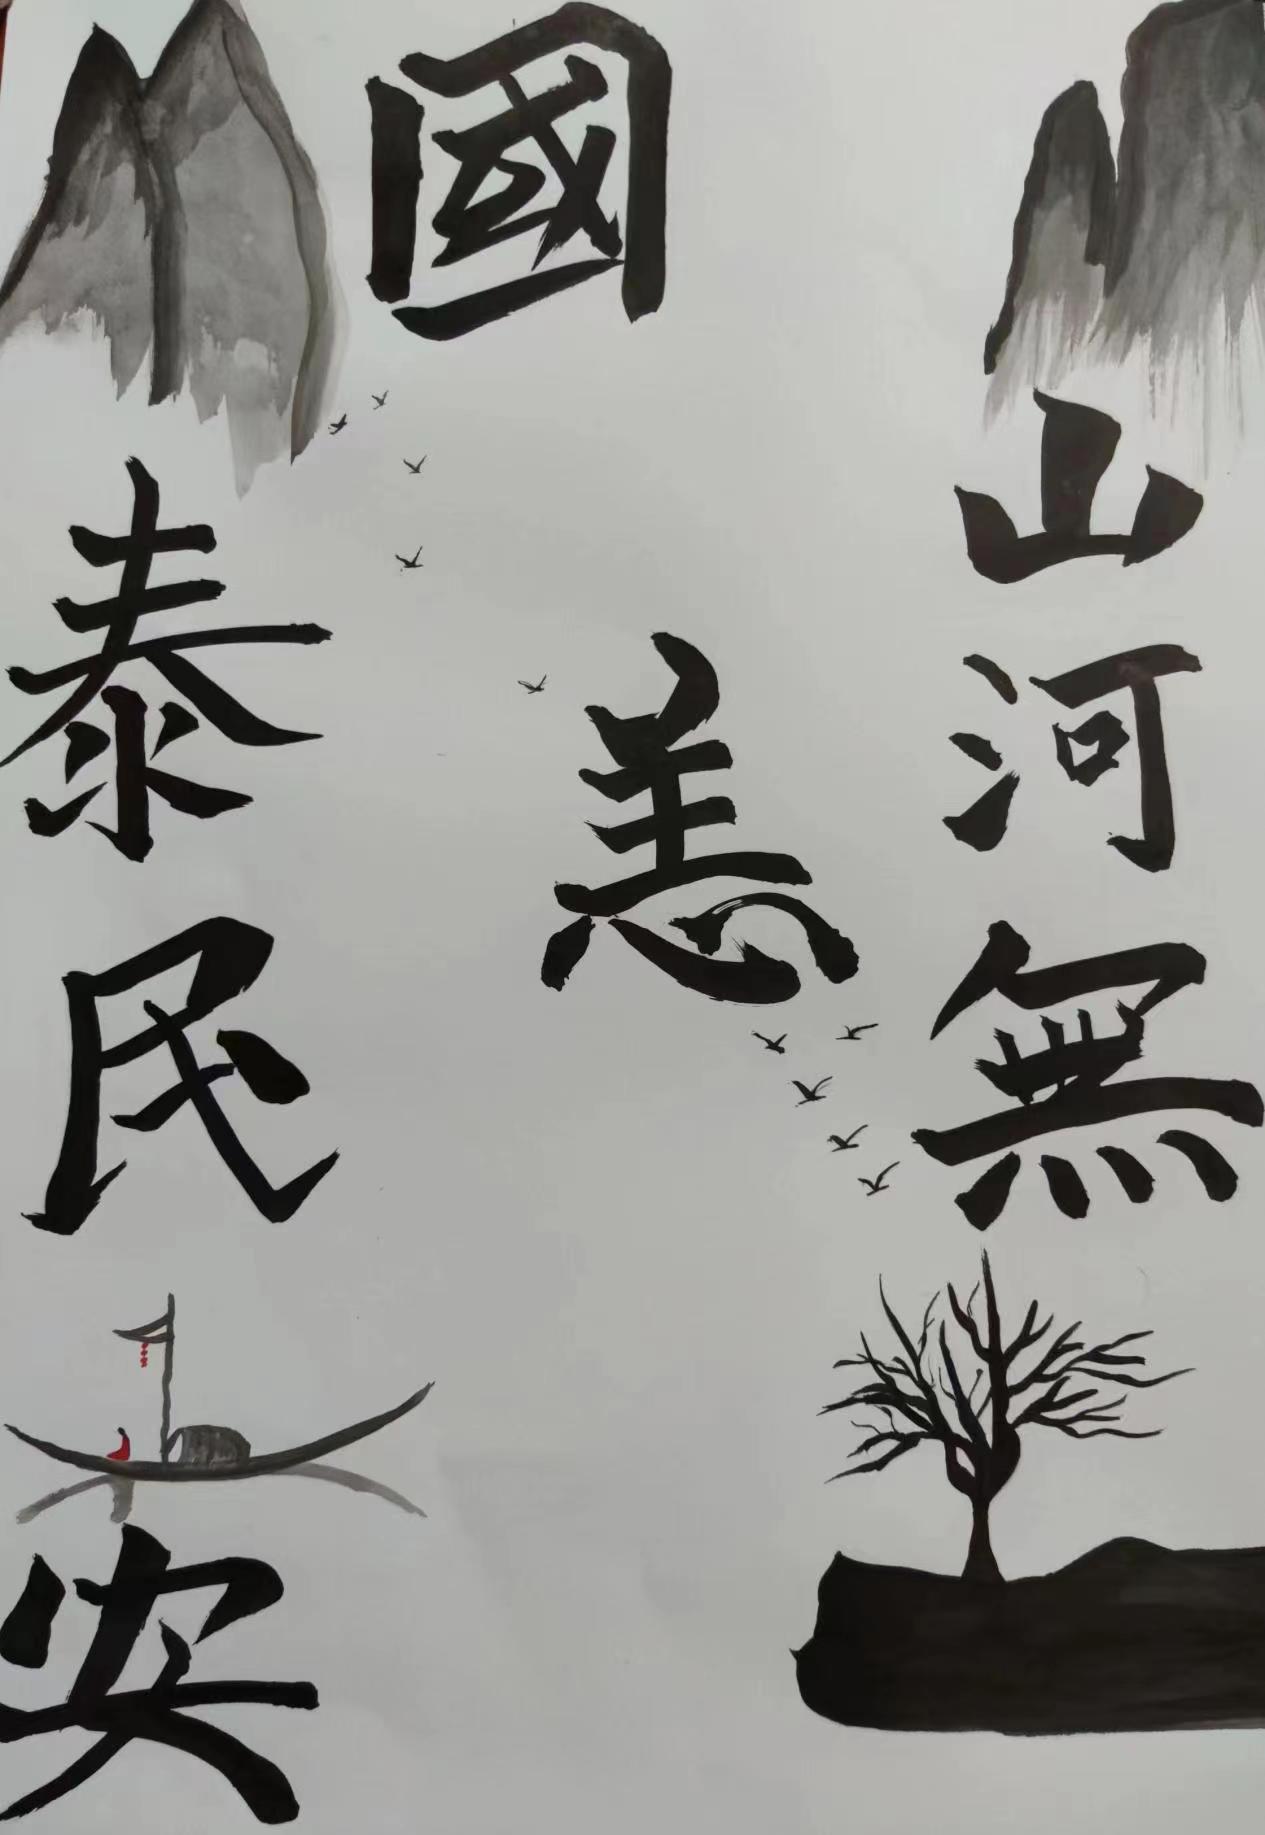 山河無
恙
國
泰民安